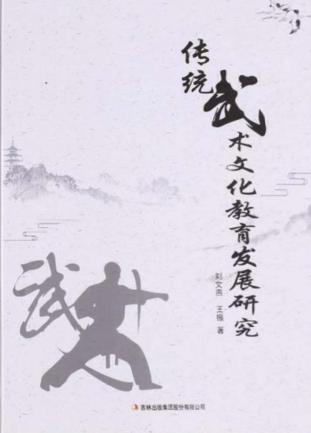 传统武术文化教育发展研究
刘文燕 王振 著
武
吉林出版集团股份有限公司